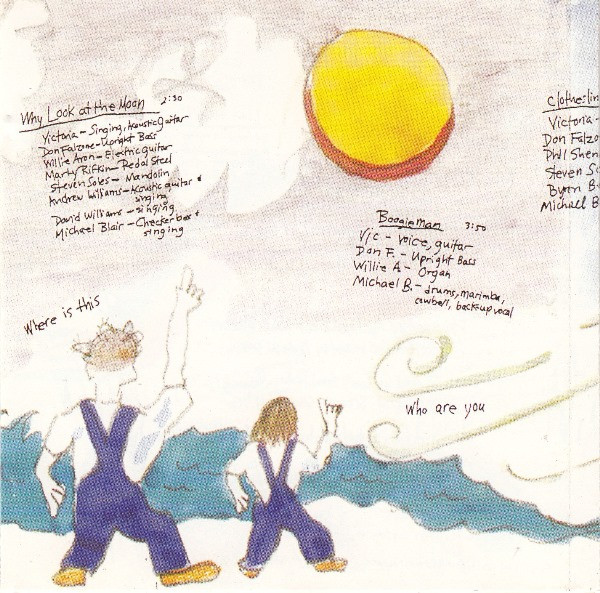 Why Look at the Moon 2:30
Victoria - Singing, Acoustic guitar
Don Falzone - Upright Bass
Willie Aron - Electric guitar
Marty Rifkin - Pedal Steel
Steven Soles - Mandolin
Andrew Williams - Acoustic guitar +
singing
David Williams - singing
Michael Blair - Checker box +
singing
Boogieman 3:50
Vic - voice, guitar
Don F. - Upright Bass
Willie A - Organ
Michael B. - drums, marimba,
cowbell, back-up vocal
Clotheslin
Victoria -
Don Falzo
Phil Shen
Steven So
Byron B
Michael B
Where is this
Who are you